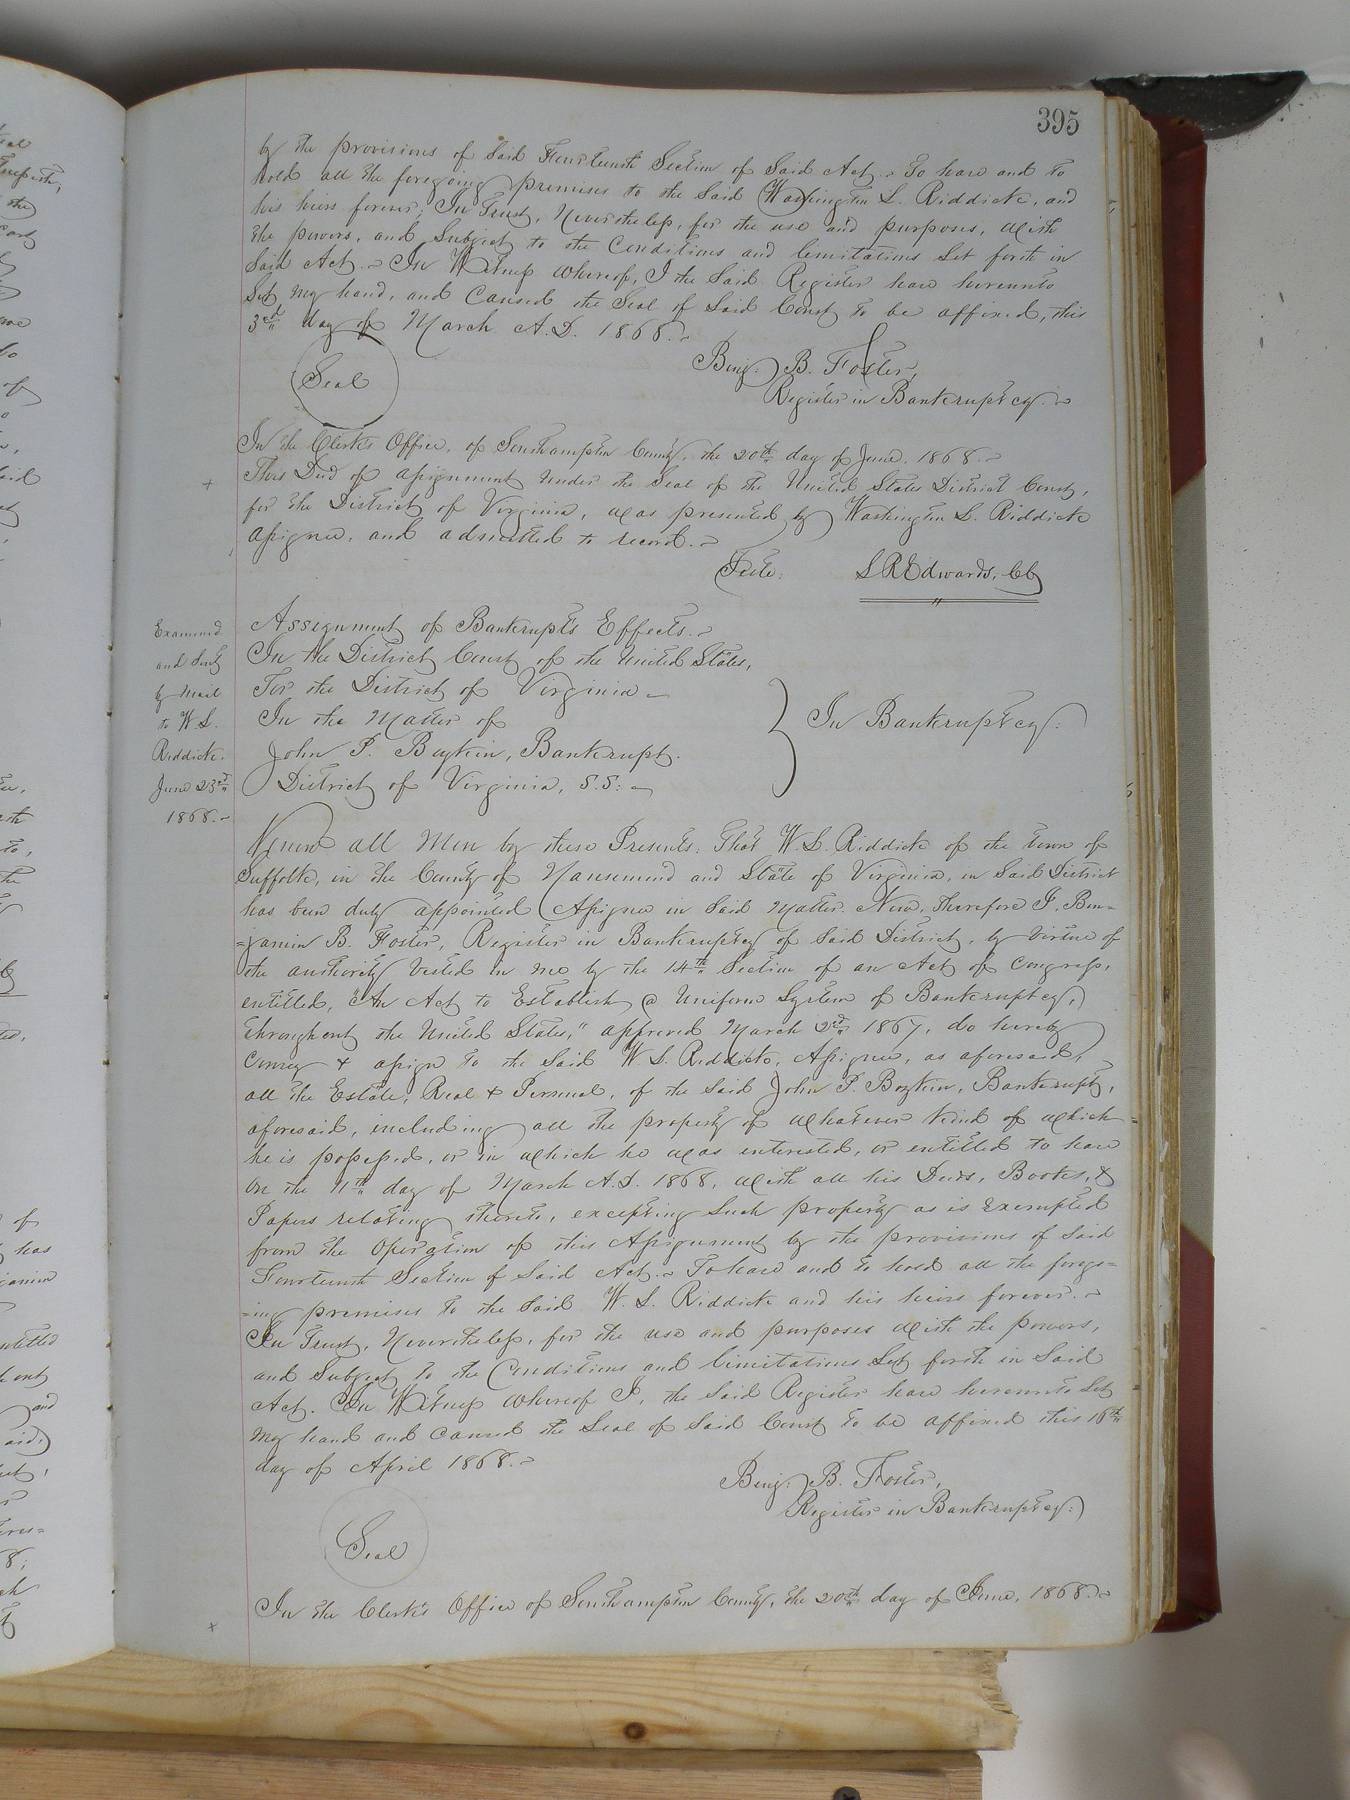 395
by the provisions of Said Fourteenth Section of Said Act.~ To have and to
hold all the foregoing premises to the Said Washington L. Riddick, and
his heirs forever; In Trust, Nevertheless, for the use and purposes, with
the powers, and Subject to the Conditions and limitations Set forth in
Said Act.~ In Witness whereof, I the Said Register have hereunto
Set my hand, and Caused the Seal of Said Court to be affixed, this
3rd day of March A.D. 1868.~
Benj. B. Foster,
Register in Bankruptcy.~
Seal
In the Clerk's Office, of Southampton County, the 20th day of June, 1868.~
This Deed of assignment under the Seal of the United States District Court,
for the District of Virginia, was presented by Washington L. Riddick
assignee, and admitted to record.~
Teste:
L R Edwards, CC
Examined
and Sent
by Mail
to W.L.
Riddick.
June 23rd
1868.~
Assignment of Bankrupts Effects.~
In the District Court of the United States,
For the District of Virginia~
In the Matter of
John P. Boykin, Bankrupt.
District of Virginia, S.S:~
} In Bankruptcy:
Know all Men by these Presents, That W.L. Riddick of the town of
Suffolk, in the County of Nansemond and State of Virginia, in Said District
has been duly appointed Assignee in Said Matter. Now, therefore I, Ben=
=jamin B. Foster, Register in Bankruptcy of Said District, by virtue of
the authority Vested in me by the 14th Section of an Act of Congress,
entitled, "An Act to Establish a Uniform System of Bankruptcy,
throughout the United States," approved March 2nd 1867, do hereby
Convey & assign to the Said W.L. Riddick, Assignee, as aforesaid,
all the Estate, Real & Personal, of the Said John P. Boykin, Bankrupt,
aforesaid, including all the property of whatever Kind of which
he is possessed, or in which he was interested, or entitled to have
On the 11th day of March A.D. 1868, with all his Deeds, Books, &
Papers relating thereto, excepting Such property as is Exempted
from the Operation of this Assignment by the provisions of Said
Fourteenth Section of Said Act.~ To have and to hold all the forego=
=ing premises to the Said W. L. Riddick and his heirs forever.~
In Trust, Nevertheless, for the use and purposes with the powers,
and Subject to the Conditions and limitations Set forth in Said
Act. In Witness whereof I, the Said Register have hereunto Set
My hand and Caused the Seal of Said Court to be affixed this 16th
day of April 1868.~
Benj. B. Foster,
Register in Bankruptcy:
Seal
In the Clerk's Office of Southampton County, the 20th day of June, 1868.~